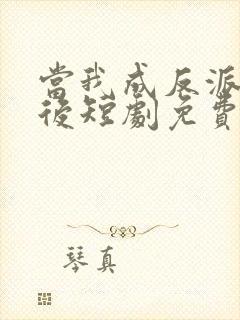 當我成反派
後短劇免費
琴真